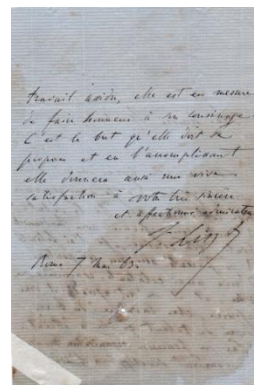 travail assidu, elle est en mesure
de faire honneur à son
C'est le but qu'elle doit se
proposer et en l'accomplissant
elle donnera aussi une vive
satisfaction à votre très sincère
et affectionné
F. Liszt
Rome 7 Mai 63.